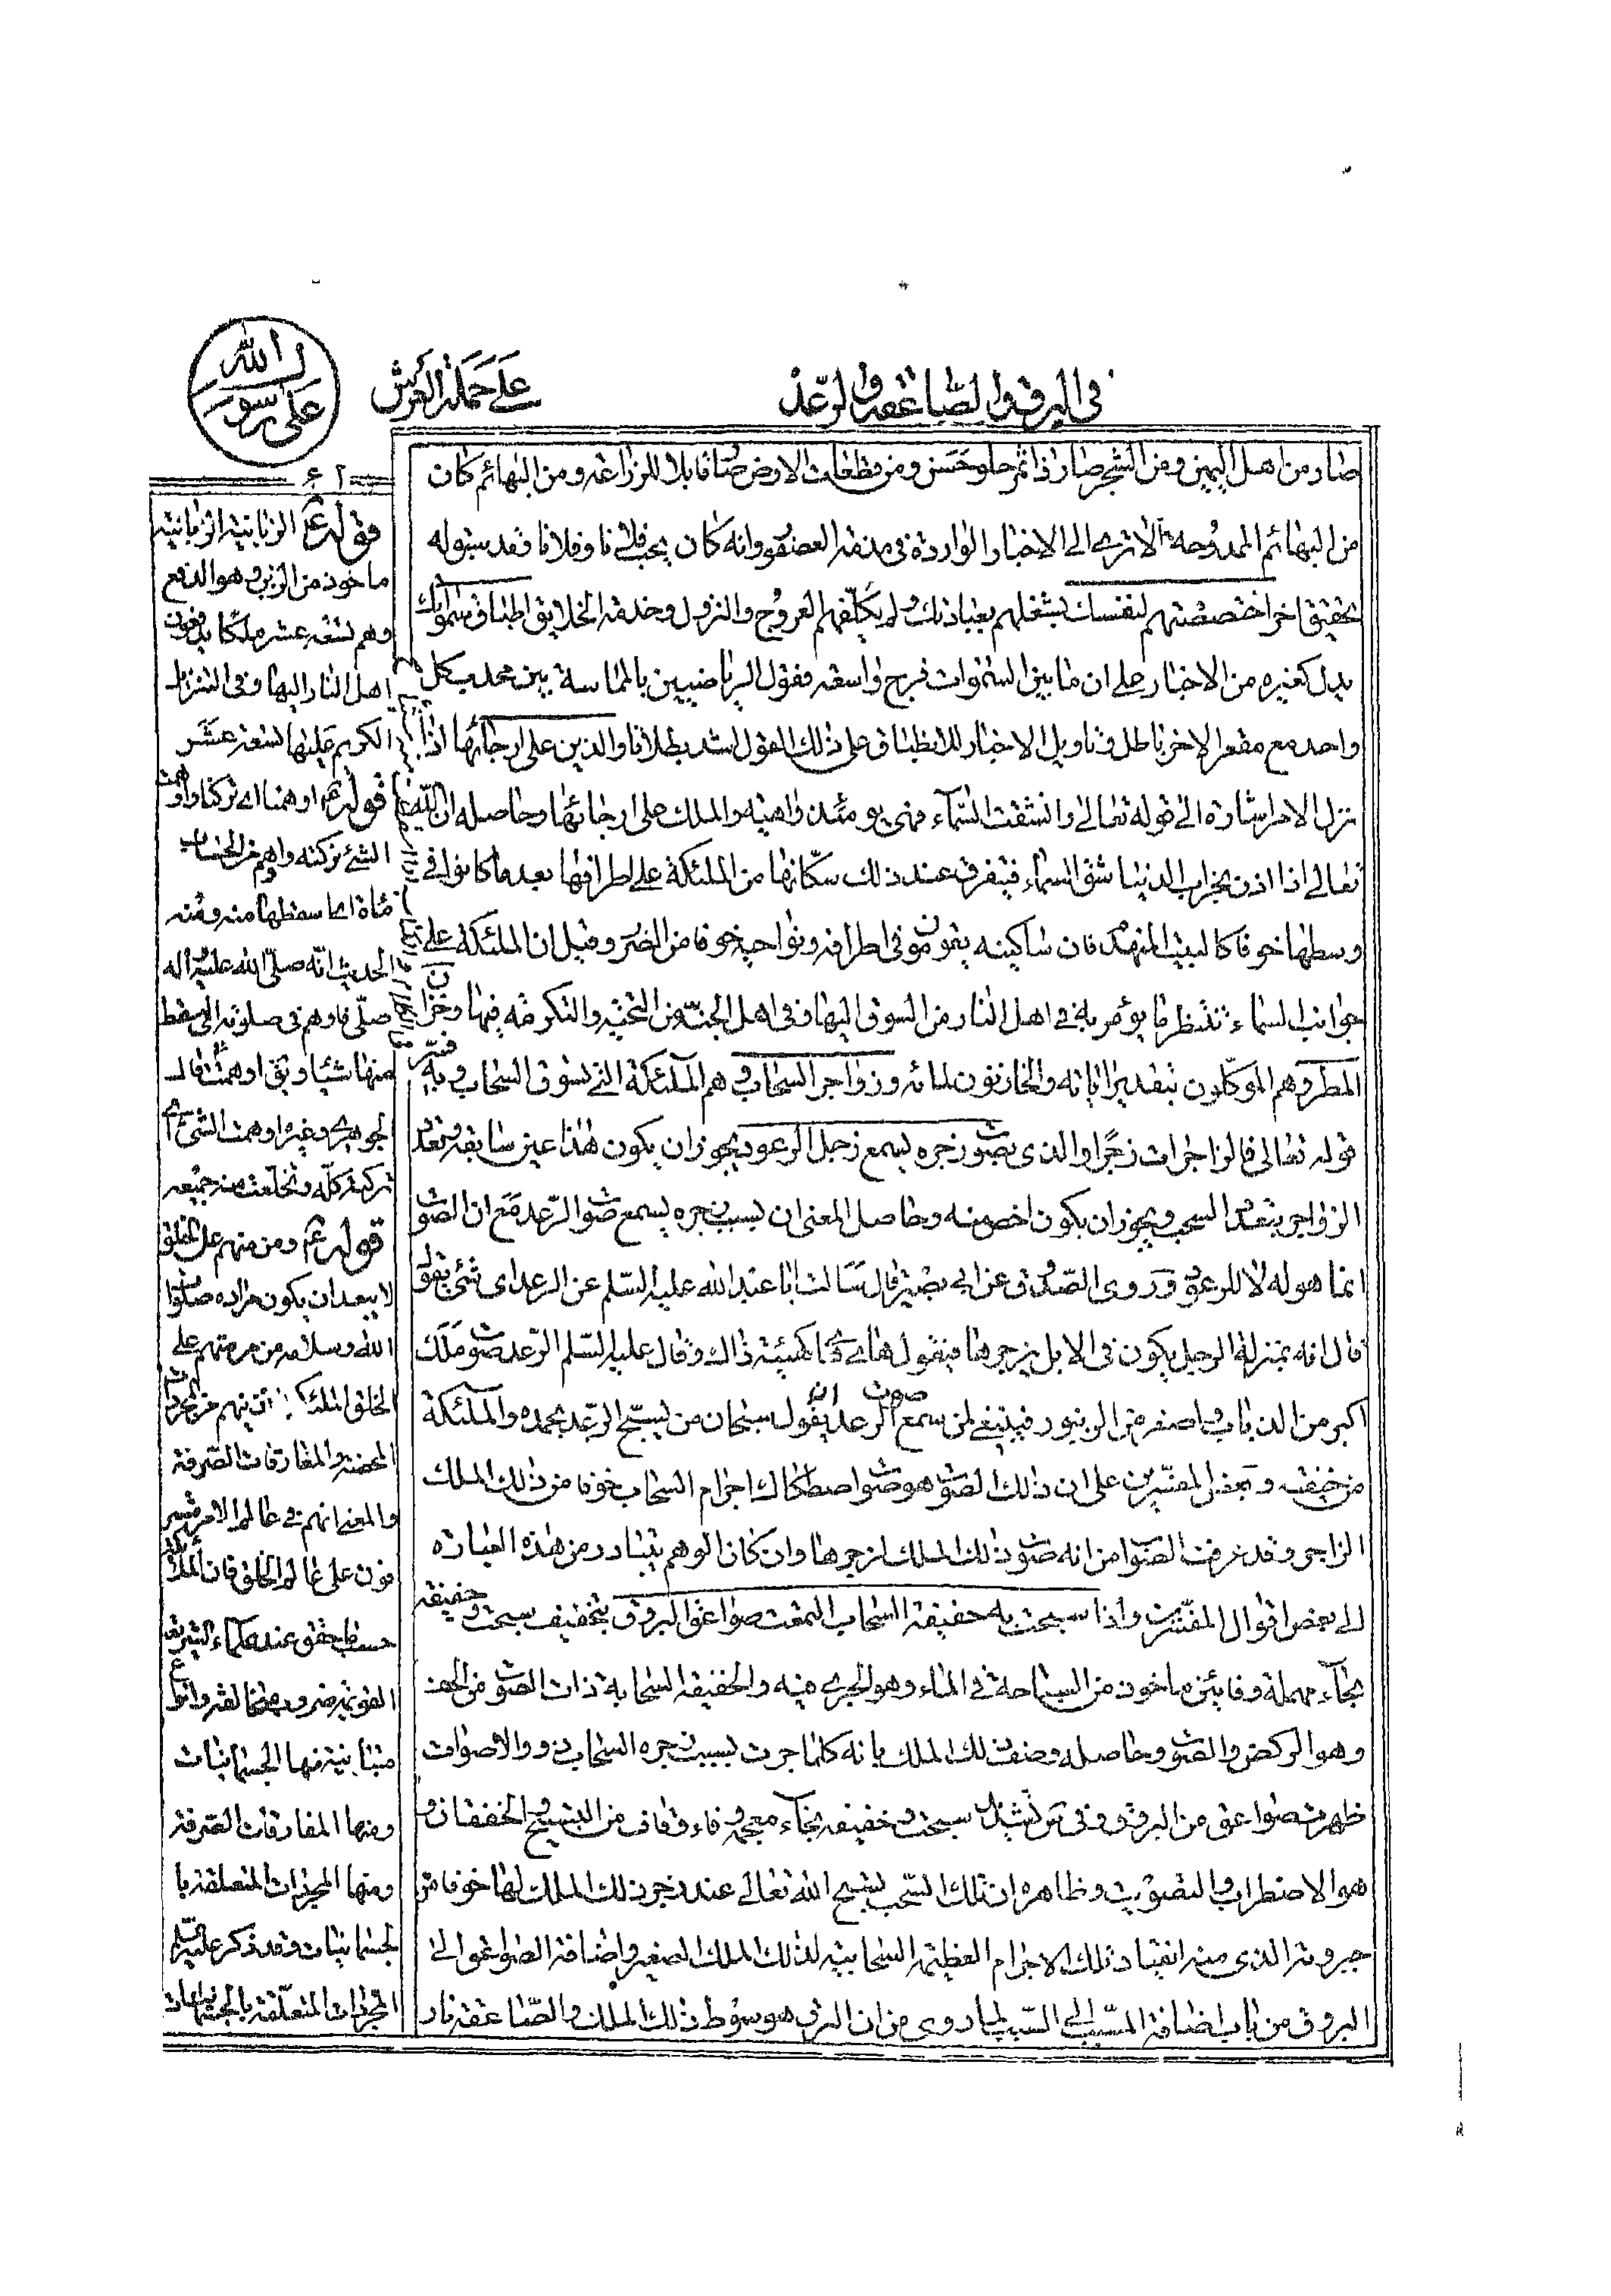 في البرق والصاعقة والرعد
على حملة العرش
رسول الله
على
صار من اهل اليمين ومن الشجر صار ذا ثمر حلو حسن ومن قطعات الارض صار قابلا للزراعة ومن البهائم كان
من البهائم الممدوحة الا ترى الى الاخبار الواردة في مدقة العصفور وانه كان يحب فلانا وفلانا فقد سبق له
تحقيق اخر اختصصتهم لنفسك بشغلهم بعبادتك ولم يكلفهم العروج والنزول وخدمة الخلايق اطباق سمواتك
يدل كغيره من الاخبار على ان ما بين السموات فرج واسعة فقول الرياضيين بالمماسة بين محدب كل
واحد مع مقعر الاخر باطل وتاويل الاخبار للانطباق على ذلك القول اشد بطلانا والذين على ارجائها اذا
نزل الامر اشارة الى قوله تعالى وانشقت السماء فهي يومئذ واهية والملك على ارجائها وحاصله ان الله
تعالى اذا اذن بخراب الدنيا شق السماء فيتفرق عند ذلك سكانها من الملئكة على اطرافها بعد ما كانوا في
وسطها خوفا كالبيت المنهدم فان ساكنيه يقومون في اطرافه ونواحيه خوفا من الضرر وقيل ان الملئكة على
جوانب السماء تنتظر ما يؤمر به في اهل النار من السوق اليها وفي اهل الجنة من التحية والتكرمة فيها وخزان
المطر وهم الموكلون بتقدير اباته والخازنون لمائه وزواجر السحاب وهم الملئكة التي تسوق السحاب وبه فسر
قوله تعالى فالزاجرات زجرا والذي بصوت زجره يسمع زجل الرعود يجوز ان يكون هذا عين سابقه وتعدد
الزواجر بتعدد السحب ويجوز ان يكون اخص منه وحاصل المعنى ان بسبب زجره يسمع صوت الرعد مع ان الصوت
انما هو له لا للرعد وروى الصدوق عن ابي بصير قال سالت ابا عبد الله عليه السلم عن الرعد اى شئ يقول
قال انه بمنزلة الرجل يكون في الابل يزجرها فيقول هاى هاى كهيئة ذاك وقال عليه السلم الرعد صوت ملك
اكبر من الذباب واصغر من الزنبور فينبغي لمن سمع صوت الرعد ان يقول سبحان من يسبح الرعد بحمده والملئكة
من خيفته وبعض المفسرين على ان ذلك الصوت هو صوت اصطكاك اجرام السحاب خوفا من ذلك الملك
الزاجر وقد عرفت الصواب من انه صوت ذلك الملك لزجرها وان كان الوهم يتبادر من هذه العبارة
الى بعض اقوال المفسرين واذا سبحت به حفيفة السحاب التمعت صواعق البروق بتخفيف سبحت وحفيفة
بحاء مهملة وفائين ماخوذ من السباحة في الماء وهو الجرى فيه والحفيفة السحابة ذات الصوت من الحف
وهو الركض والصوت وحاصله وصف ذلك الملك بانه كلما جرت بسبب زجره السحاب ذوو الاصوات
ظهرت صواعق من البروق وفي س تشديد سبحت وخفيفة بخاء معجمة وفاء وقاف من التسبيح والخفقان و
هو الاضطراب والتصويت وظاهره ان تلك السحب تسبح الله تعالى عند زجر ذلك الملك لها خوفا من
جبروته الذى منه انقياد تلك الاجرام العظيمة السحابية لذلك الملك الصغير واضافة الصواعق الى
البروق من باب اضافة المسبب الى السبب لما روى من ان البرق هو سوط ذلك الملك والصاعقة نار
قوله ع الزبانية الزبانية
ماخوذ من الزبن وهو الدفع
وهم تسعة عشر ملكا يدفعون
اهل النار اليها وفي التنزيل
الكريم عليها تسعة عشر
قوله ع اوهمنا اى تركنا واوهمت
الشئ تركته واوهم من الحساب
مائة اى اسقطها منه ومنه
الحديث انه صلى الله عليه واله
صلى فاوهم في صلوته اى اسقط
منها شيئا وبقى اوهمت قال
الجوهرى وغيره اوهمت الشئ
تركته كله وتخلفت منه جميعه
قوله ع ومن منهم على الخلق
لا يبعد ان يكون مراده صلوات
الله وسلامه من مرتبتهم على
الخلق
المحضة والمفارقات الصرفة
والمعنى انهم في عالم الامر مشر
فون على عالم الخلق فان الملائكة
حسبما حقق عند حكماء الشريعة
متباينة منها الجسمانيات
ومنها المفارقات الصرفة
ومنها المجردات المتعلقة با
لجسمانيات وقد ذكر عليه السلم
المجردات المتعلقة بالجسمانيات